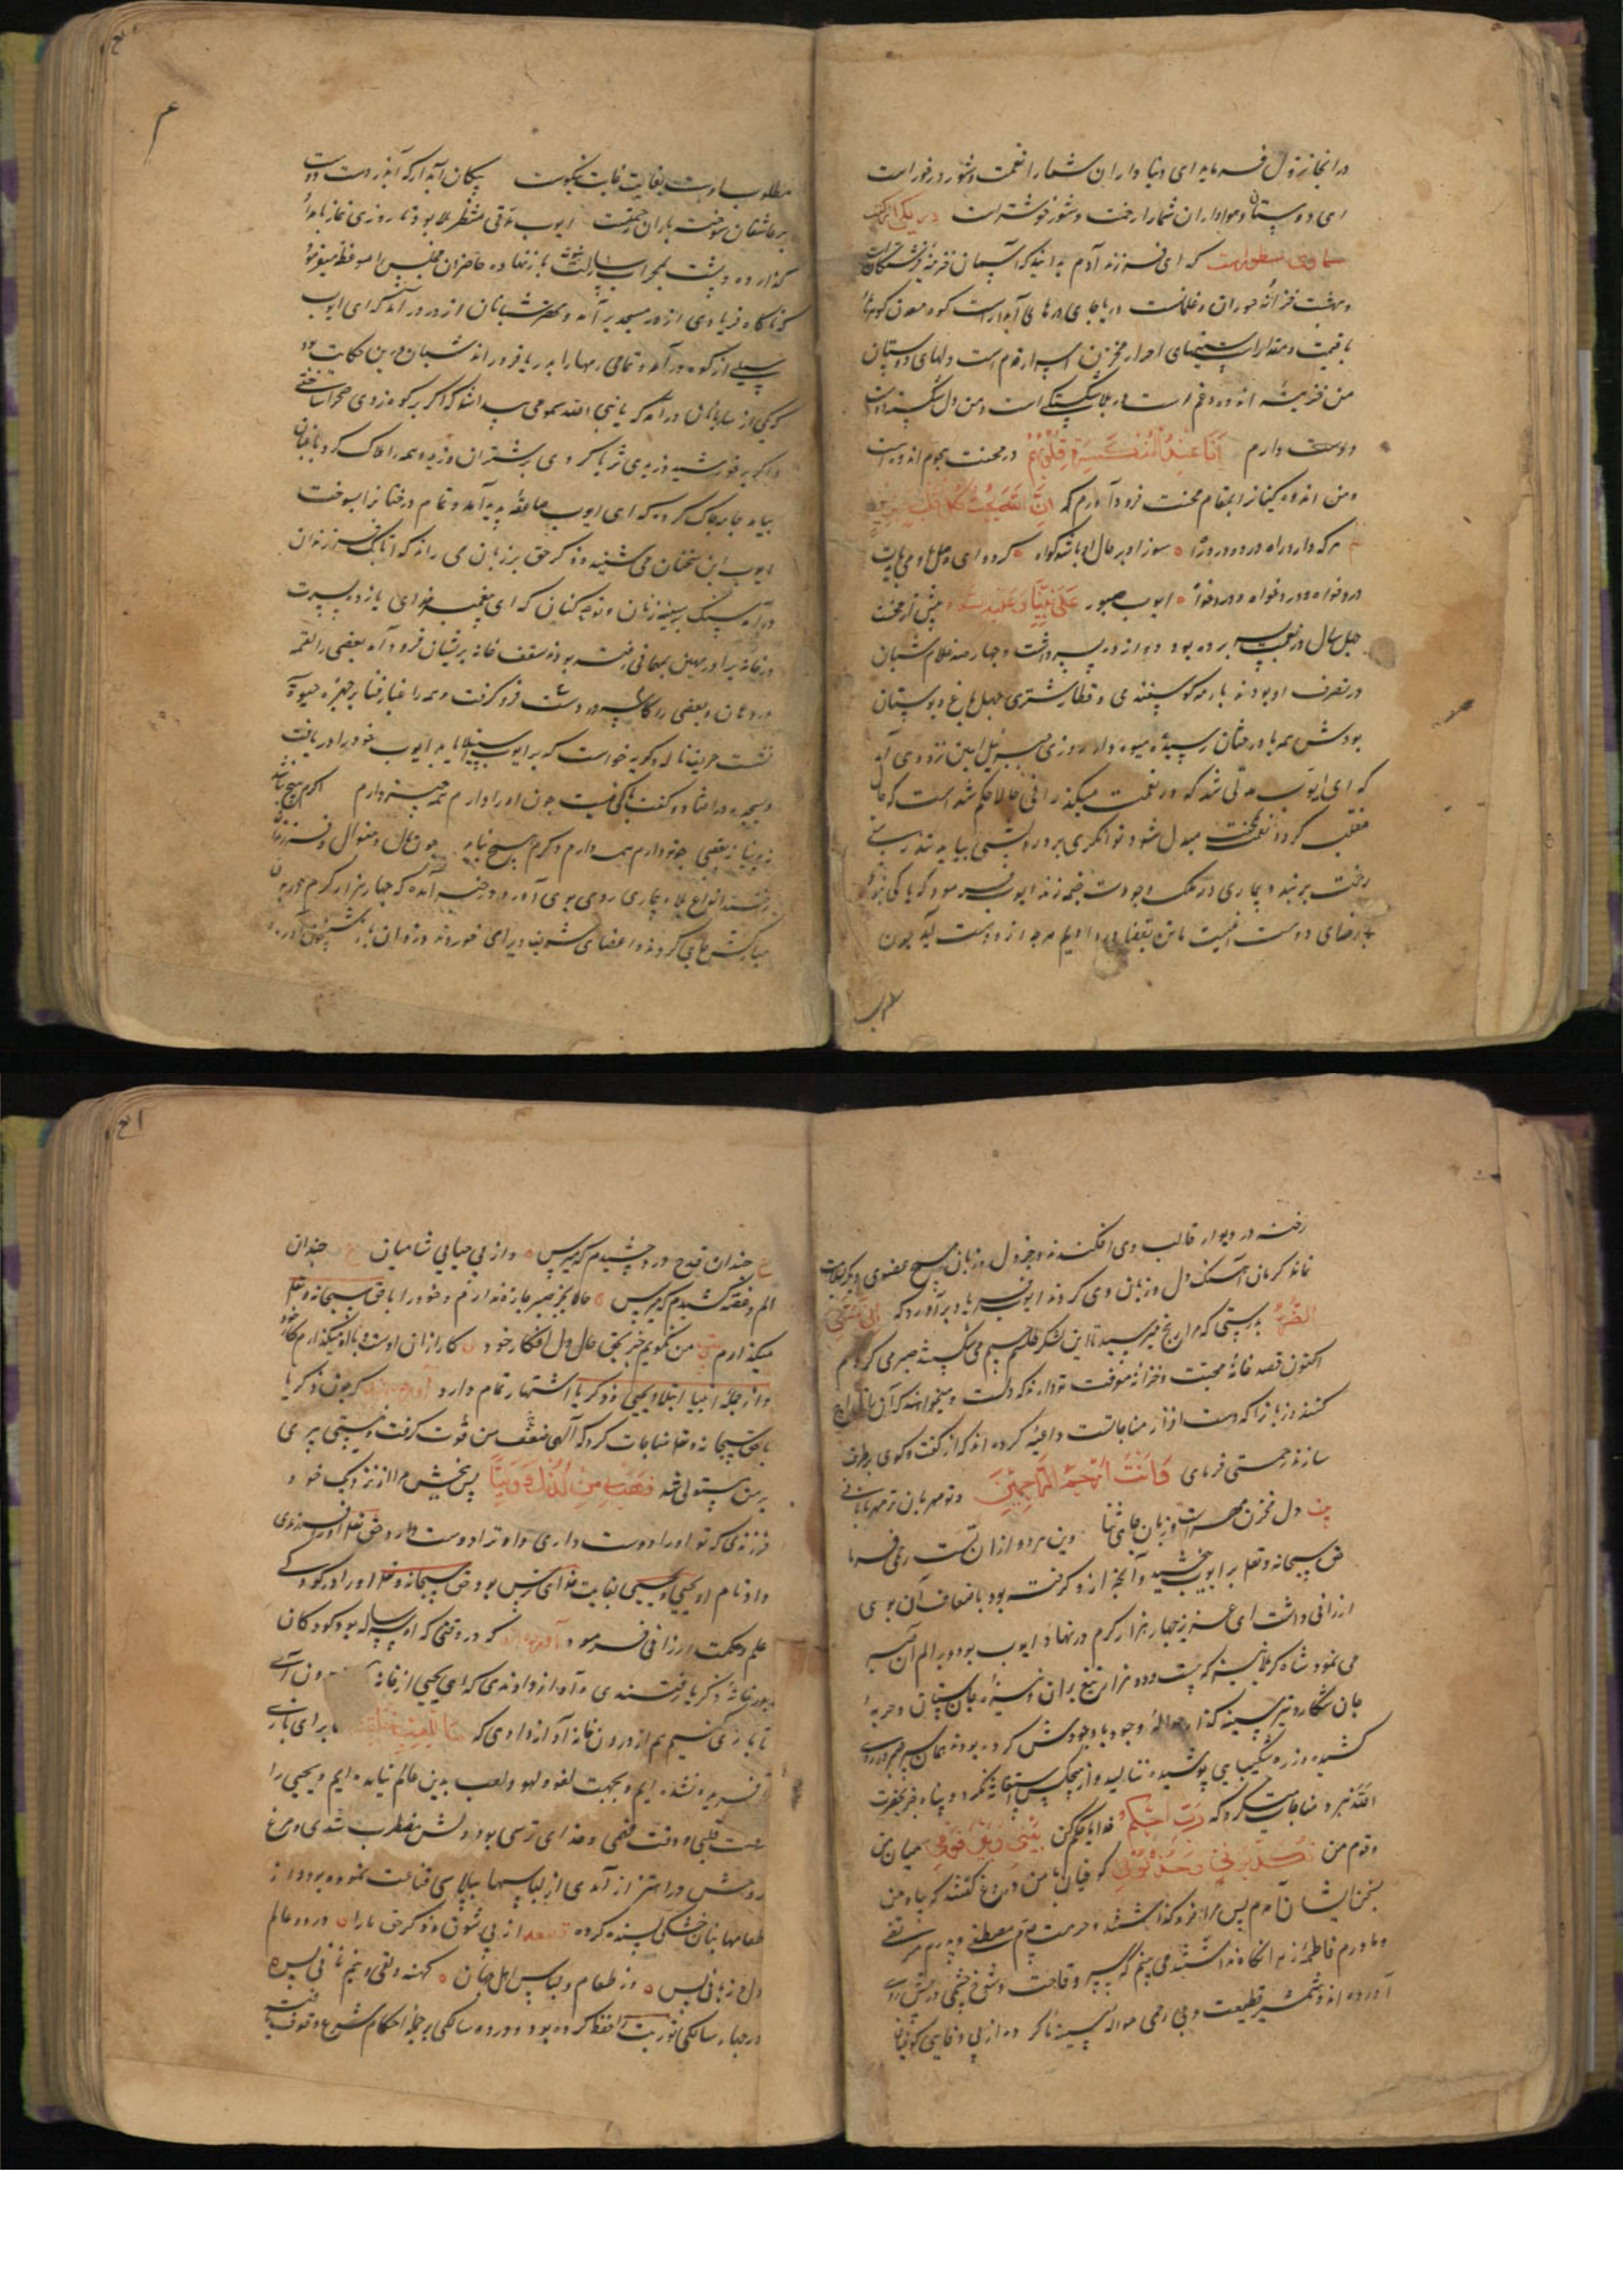 در انجا نزول فرماید ای دنیا داران شما را نعمت و شور درخور است
ای دوستان و هواداران شما را رخت و شور خوشتر است در یکی از کتب
سماوی مسطورست که ای فرزند آدم بدانید که آسمان خزینه فرشتگان است
و بهشت خزانه حوران و غلمانست دریا جای درهای آبدار است کوه معدن گوهرهای
با قیمت و مقدار است سینهای احرار مخزن اسرار قوم است و دلهای دوستان
من خزینه اندوه و غم است در بلا شکستگی است و من دل شکسته را
دوست دارم انا عند المنکسرة قلوبهم در محنت هجوم اندوه است
و من اندوه کینانرا بمقام محنت فرود آورم که ان الله یحب کل قلب حزین
هر که دارد راه درد و روز را سوز او بر حال او باشد گواه کرده ای
درد خواه و درد خواه و درد خواه ایوب صبور علی نبینا و علیه السلام پیش از محنت
چهل سال در نعمت بسر برده بود دوازده پسر داشت و چهارصد غلام شبان
در تصرف او بودند با رمه گوسفند و قطار شتری چهل باغ و بوستان
بودش همه با درختان رسیده میوه دار روزی جبرئیل امین نزد وی آمد
که ای ایوب مدتی شد که در نعمت میگذرانی حالا حکم شد است که حال
منقلب گردد نعمت بمحنت مبدل شود توانگری برود درویشی بیاید تندرستی
رخت بربندد و بیماری در ملک وجودت خیمه زند ایوب فرمود که باکی نبود
با رضای دوست ما تن بقضا در دادیم هر چه از دوست آید چون
مطلوب اوست بغایت غایت نیکوست پیکان آبدار که آید ز دست دوست
بر عاشقان سوخته باران رحمتست ایوب مدتی منتظر بلا بود تا روزی نماز بامداد
گذارده و پشت بمحراب باز نهاده حاضران مجلس را موعظه میفرمود
که ناگاه فریادی از در مسجد برآمد و مهتر شبانان از در درآمد که ای ایوب
سیلی از کوه درآمد و تمامی رمها را بدریا فرو راند شبان درین حکایت بود
که یکی از ساربانان درآمد که یا نبی الله سمومی پیدا شد که اگر بر کوه زدی صحرا ساختی
و اگر بر خورشید وزیدی ثریا کردی بر شتران وزید و همه را هلاک کرد باغبان
بیامد جامه چاک کرده که ای ایوب صاعقه پدید آمد و تمام درختانرا بسوخت
ایوب این سخنان می شنید و ذکر حق بر زبان می راند که اتابک فرزندان
درآمد سنگ بر سینه زنان و نوحه کنان که ای پیغمبر خدای یازده پسرت
در خانه برادر مهین بمهمانی رفته بودند سقف خانه بر ایشان فرود آمد بعضی را لقمه
در دهان و بعضی را کاسه در دست فرو گرفت و همه را غبار فنا بر چهره حیوة
نشست
و سجده در افتاد و گفت باکی نیست چون او را دارم همه چیز دارم اگرم هیچ نباشد
نه دنیا نه عقبی چو تو دارم همه دارم دگرم هیچ نباید چون مال و منوال و فرزندان
برفت انواع بلا و بیماری روی بوی آورد و در خبر آمده که چهار هزار کرم در بدن
مبارکش جای کردند و اعضای شریف ویرا می خوردند
رخنه در دیوار قالب وی افکندند و جز دل و زبان هیچ عضوی دیگر سلامت
نماند کرمان آهنگ دل و زبان وی کردند ایوب فریاد برآورد که انی مسنی
الضر بدرستی که مرا رنج می رسید تا این لشکر قلعه جسم می شکستند صبر می کردم
اکنون قصد خانه محبت و خزانه معرفت تو دارند که دلست و میخواهند که آن را تاراج
کنند و زبانرا که دست افزار مناجاتست داعیه کرده اند که از گفت و گوی برطرف
سازند رحمتی فرمای و انت ارحم الراحمین و تو مهربان تر مهربانانی
بیت دل مخزن مهر است و زبان جای ثنا وین هر دو از آن تست رحمی فرما
حق سبحانه و تعلی بر ایوب بخشید و آنچه از و گرفته بود باضعاف آن بوی
ارزانی داشت ای عزیز چهار هزار کرم در نهاد ایوب بود و بر الم آن صبر
می نمود شاه کربلا بنگر که بیست و دو هزار تیغ بران و نیزه جان ستان و حربه
جان شکار و تیر سینه گذار حواله وجود با جودش کرده بودند همان سپر صبر در روی
کشیده و زره شکیبایی پوشیده ننالید و از هیچکس استغاثه نکرد و پناه جز بحضرت
الله نبرد و مناجات میکرد که رب احکم خدایا حکم کن بینی و بین قومی میان من
و قوم من
بسخن ایشان آمدم پس مرا فرو گذاشتند و حرمت جدم مصطفی و پدرم مرتضی
و مادرم فاطمه زهرا نگاه نداشتند می بینم که سپر وقاحت و شوخ چشمی در پیش روی
آورده اند و شمشیر قطیعت و بی رحمی حواله سینه ما کرده از بی وفایی کوفیان
ع چندان قدح درد چشیدم که مپرس و از بی حیایی شامیان ع چندان
الم و غصه کشیدم که مپرس حالا بجز صبر چاره ندارم و خود را با حق سبحانه و تعلی
میگذارم بیت من نگویم جز بحق حال دل افکار خود کار از آن اوست با او میگذارم کار خود
و از جمله انبیا ابتلاء یحیی و زکریا اشتهار تمام دارد آورده اند که چون زکریا
با حق سبحانه و تعلی مناجات کرد که آلهی ضعف من قوت گرفت و سستی پیری
بر من مستولی شد فهب لی من لدنک ولیا پس ببخش مرا از نزدیک خود
فرزندی که تو او را دوست داری و او ترا دوست دارد حق تعلی او را فرزندی
داد نام او یحیی و یحیی بغایت خدای ترس بود حق سبحانه و تعلی او را در کودکی
علم و حکمت ارزانی فرمود آورده اند که در وقتی که او سه ساله بود کودکان
بدر خانه زکریا رفتندی و آواز دادندی که ای یحیی از خانه بیرون آی
تا بازی کنیم هم از درون خانه آواز دادی که ما للعب خلقنا ما برای بازی
آفریده نشده ایم و بجهت لغو و لهو و لعب بدین عالم نیامده ایم و یحیی را
و خدای ترسی بود دلش مضطرب شدی و مرغ
روحش در اهتزاز آمدی از لباسها بپلاسی قناعت نموده بود و از
طعامها بنان خشکی بسنده کرده از پی شوق و ذکر حق ما را در دو عالم
دل و زبانی بس وز طعام و لباس اهل جهان کهنه دلقی و نیم نانی بس
در چهار سالگی توریت را حفظ کرده بود و در ده سالگی بر جمله احکام شرع وقوف یافت